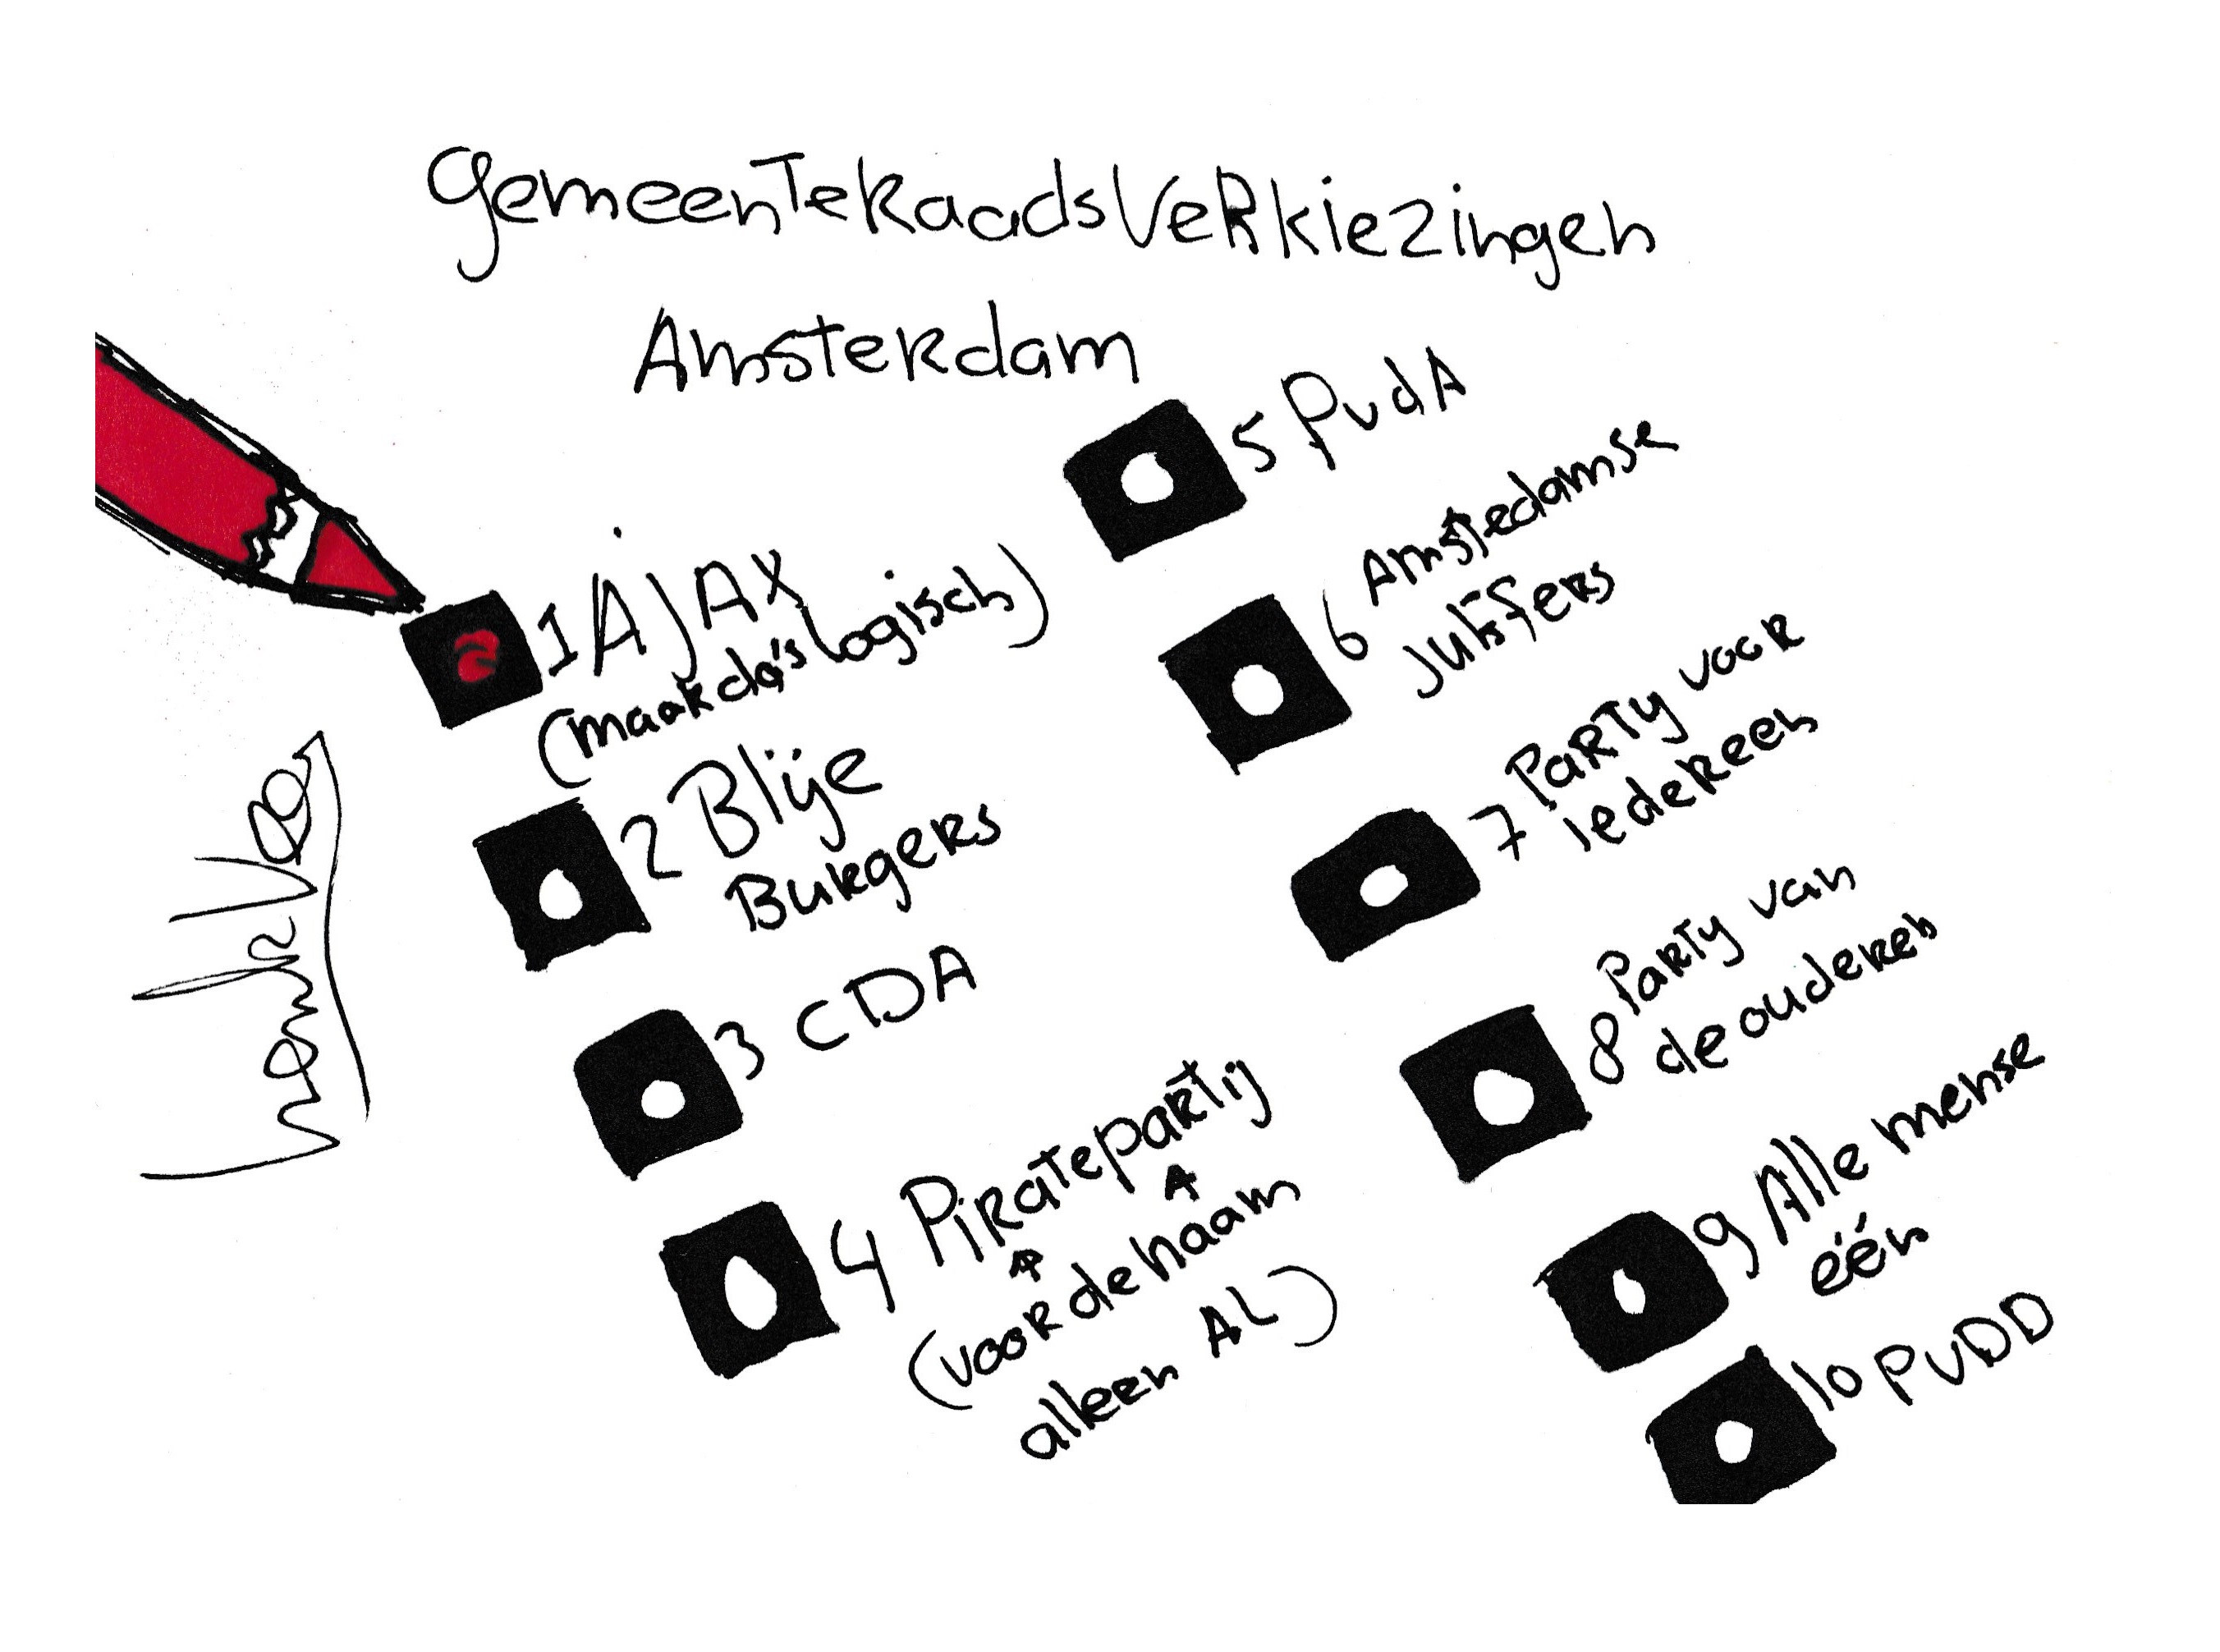 GemeenteraadsVerkiezingen
Amsterdam
1 AJAX
(maak da's logisch)
2 Blije
Burgers
3 CDA
4 Piratepartij
(voor de naam
alleen AL)
5 PvdA
6 Amstedamse
Juffers
7 Party voor
iedereen
8 Party van
de ouderen
9 Alle mense
één
10 PvDD